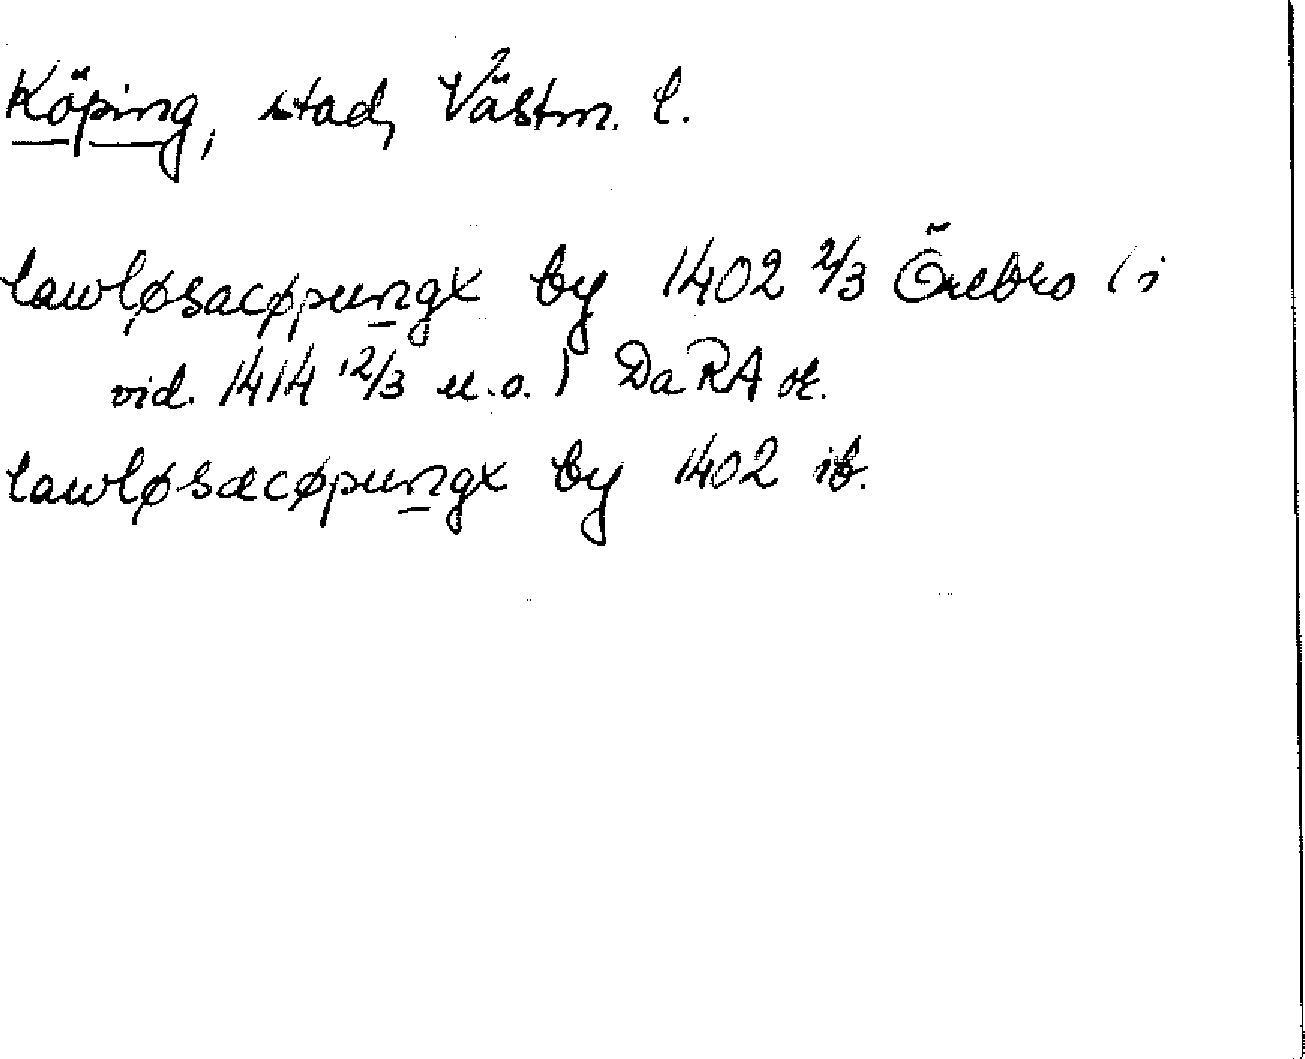 Köping, stad, Västm. l.
lawløsacøpungx by 1402 2/3 Örebro (i
vid. 1414 12/3 u.o.) Da RA or.
lawløsæcøpungx by 1402 ib.